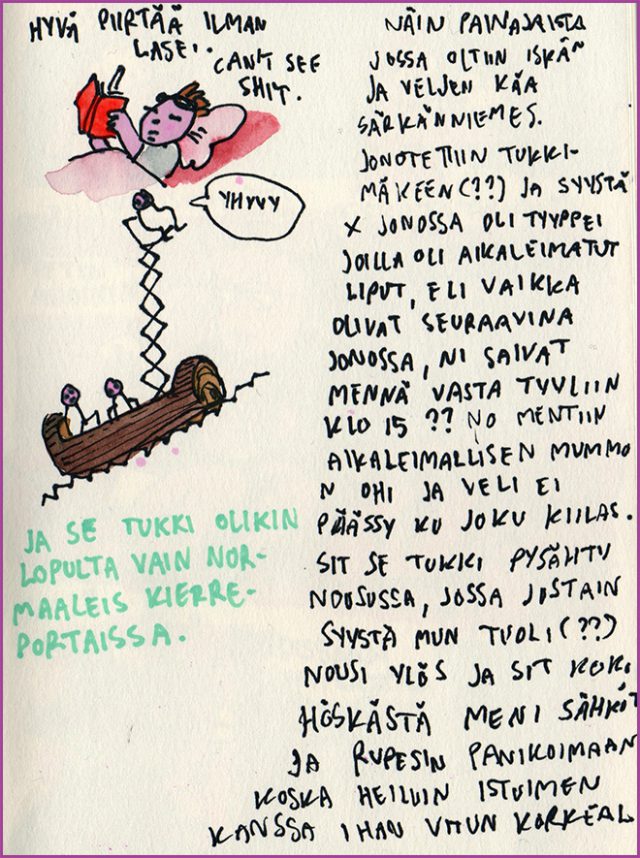 HYVÄ PIIRTÄÄ ILMAN
LASEI.
CAN'T SEE
SHIT.
YHYYY
JA SE TUKKI OLIKIN
LOPULTA VAIN NOR-
MAALEIS KIERRE-
PORTAISSA.
NÄIN PAINAJAISTA
JOSSA OLTIIN ISKÄN
JA VELJEN KAA
SÄRKÄNNIEMES.
JONOTETTIIN TUKKI-
MÄKEEN(??) JA SYYSTÄ
X JONOSSA OLI TYYPPEI
JOILLA OLI AIKALEIMATUT
LIPUT, ELI VAIKKA
OLIVAT SEURAAVINA
JONOSSA, NI SAIVAT
MENNÄ VASTA TYYLIIN
KLO 15 ?? NO MENTIIN
AIKALEIMALLISEN MUMMO
N OHI JA VELI EI
PÄÄSSY KU JOKU KIILAS.
SIT SE TUKKI PYSÄHTY
NOUSUSSA, JOSSA JOSTAIN
SYYSTÄ MUN TUOLI(??)
NOUSI YLÖS JA SIT KOKO
HÖSKÄSTÄ MENI SÄHKÖT
JA RUPESIN PANIKOIMAAN
KOSKA HEILUIN ISTUIMEN
KANSSA IHAN VITUN KORKEAL